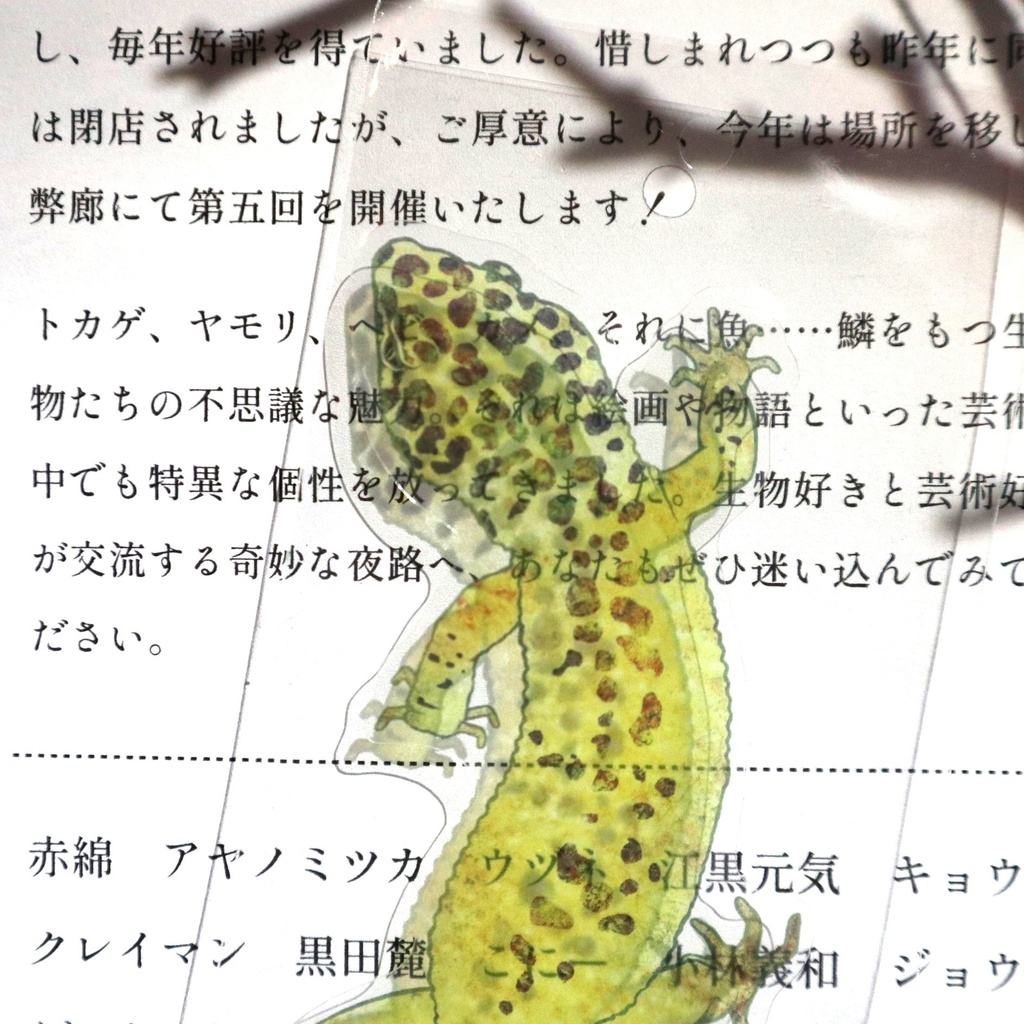 し、毎年好評を得ていました。惜しまれつつも昨年に同
は閉店されましたが、ご厚意により、今年は場所を移し
弊廊にて第五回を開催いたします！
トカゲ、ヤモリ、ヘビ、カメ、それに魚……鱗をもつ生
物たちの不思議な魅力。それは絵画や物語といった芸術
中でも特異な個性を放ってきました。生物好きと芸術好
が交流する奇妙な夜路へ、あなたもぜひ迷い込んでみて
ださい。
赤綿　アヤノミツカ　ウツネ　江黒元気　キョウ
クレイマン　黒田麓　こにー　小林義和　ジョウ